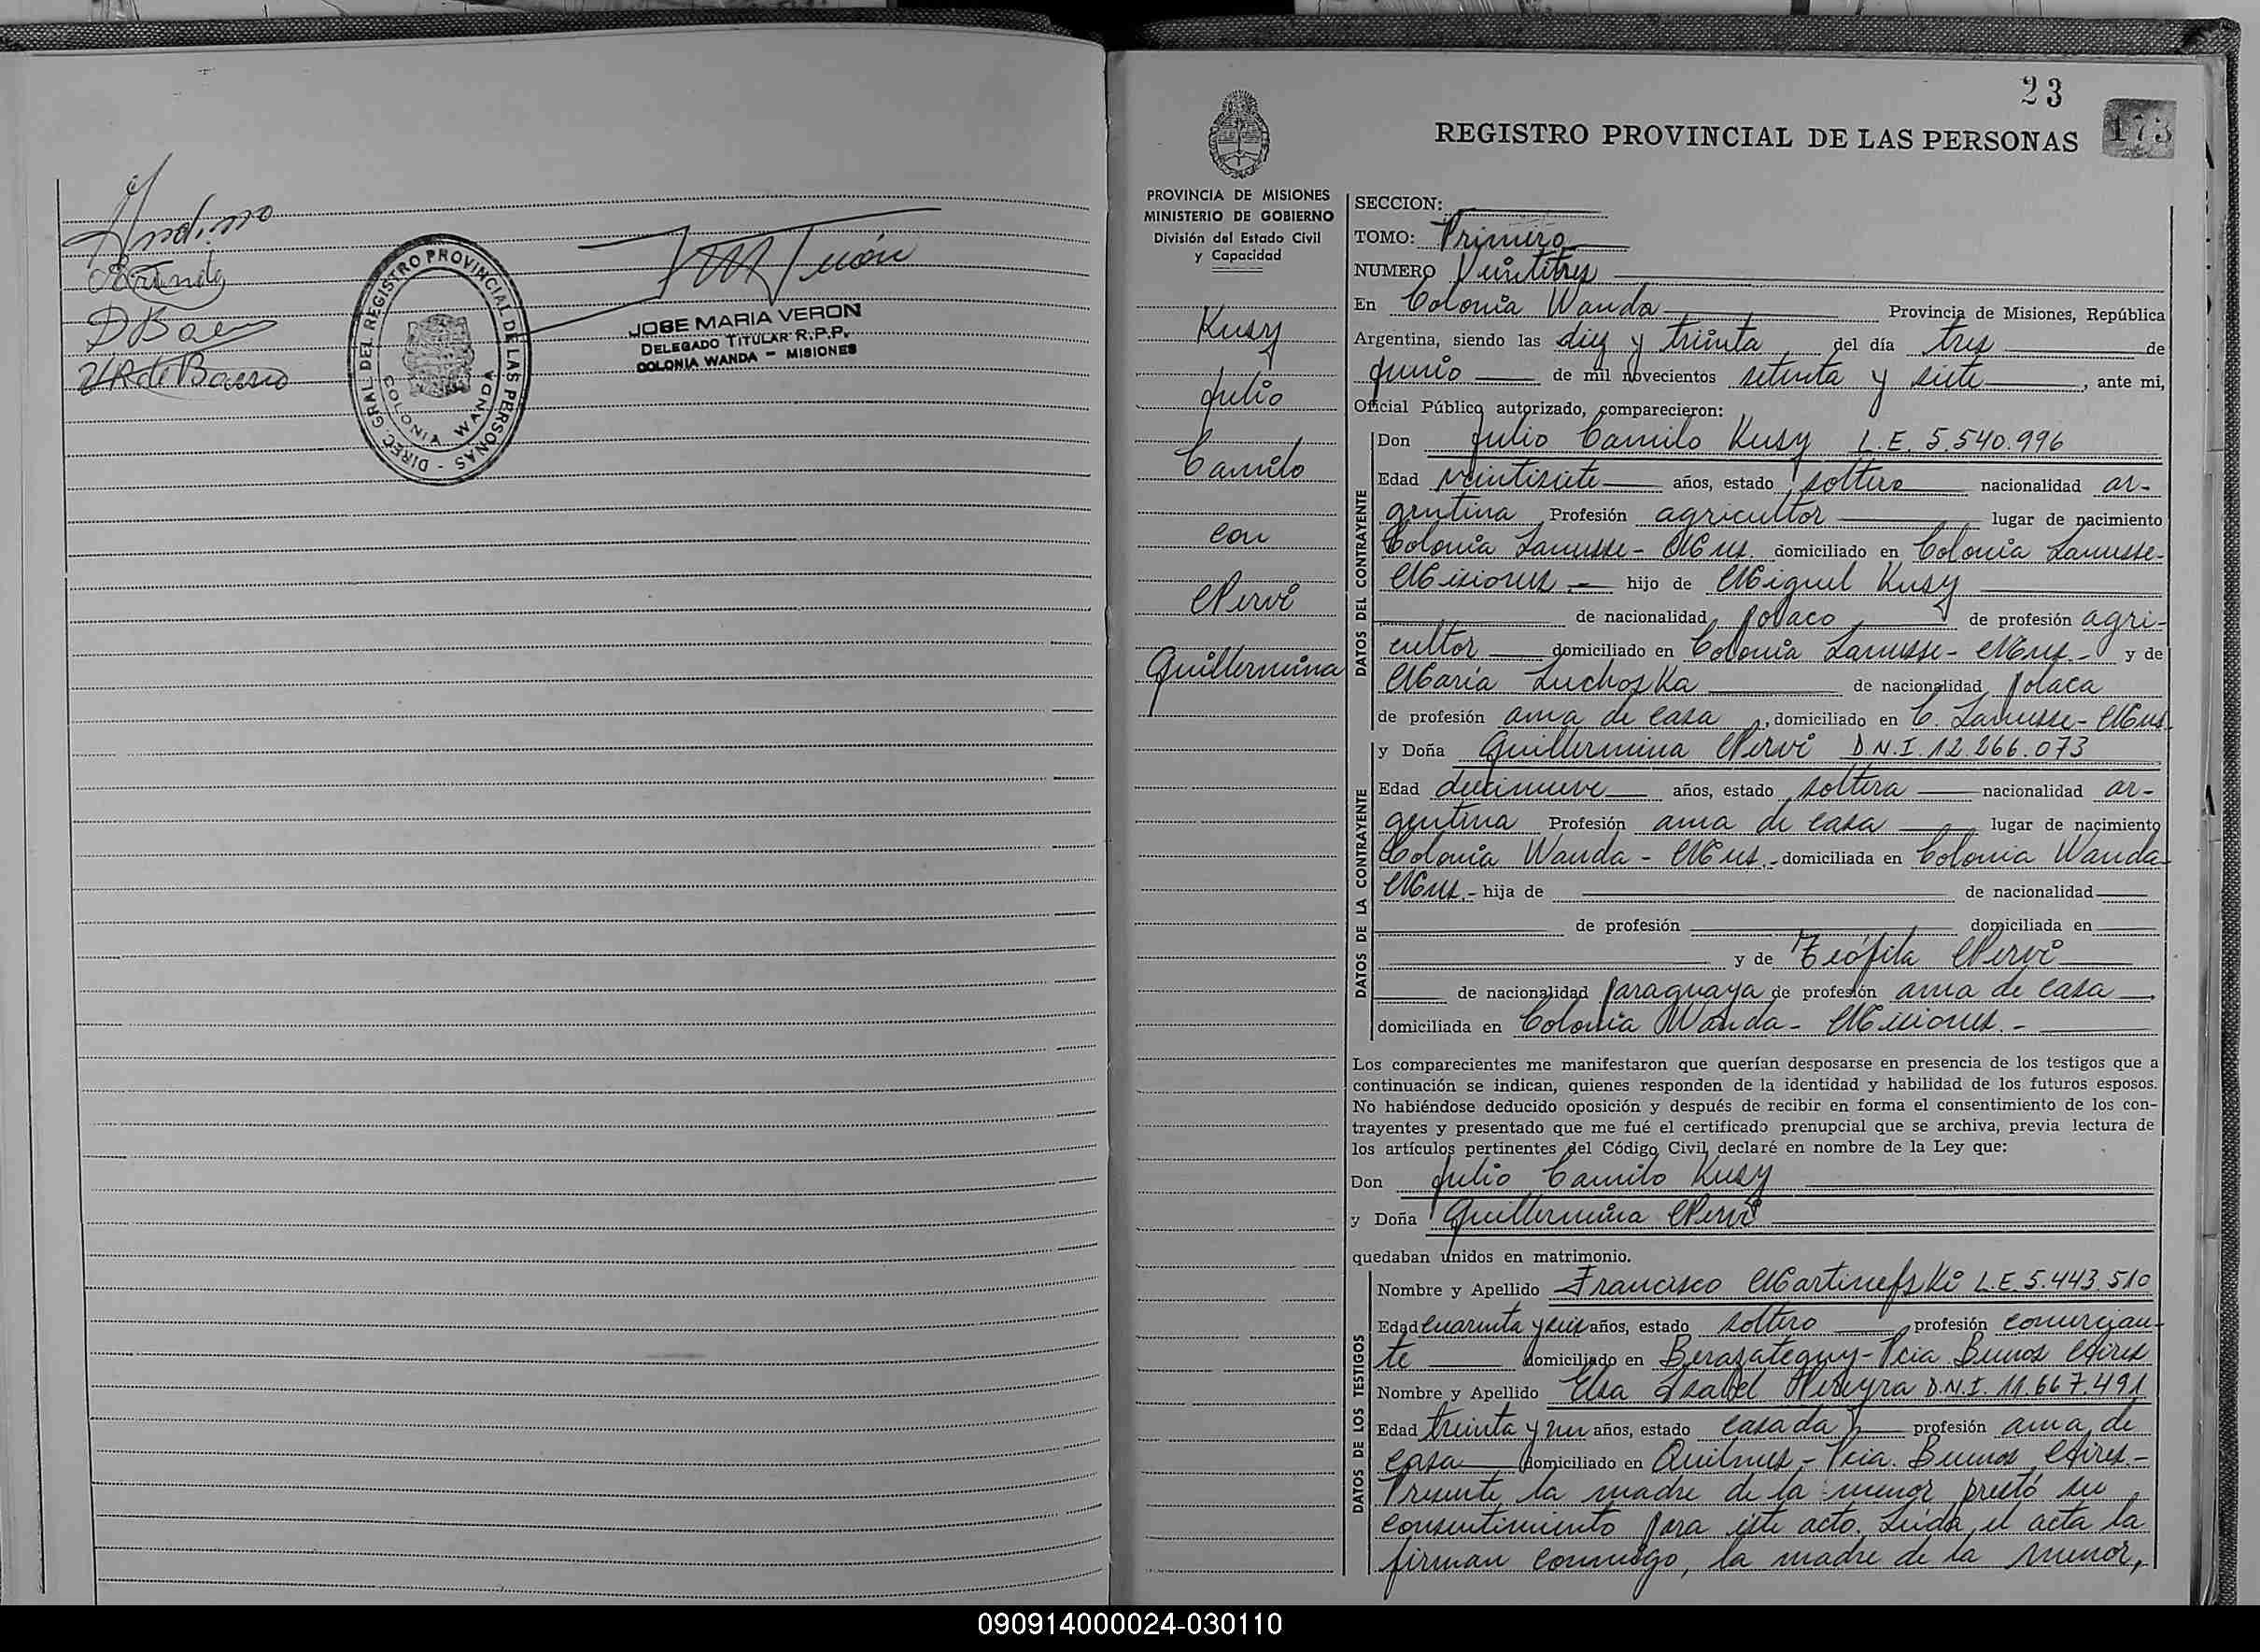 Andino
DBaez
JOSE MARIA VERON
DELEGADO TITULAR R.P.P.
COLONIA WANDA - MISIONES
DIREC GRAL DEL REGISTRO PROVINCIAL DE LAS PERSONAS -
COLONIA WANDA
23
173
REGISTRO PROVINCIAL DE LAS PERSONAS
PROVINCIA DE MISIONES
MINISTERIO DE GOBIERNO
División del Estado Civil
y Capacidad
Kusy
Julio
Camilo
con
Nervi
Guillermina
SECCION:
TOMO: Primero
NUMERO Veintitres
En Colonia Wanda Provincia de Misiones, República
Argentina, siendo las diez y treinta del día tres de
junio de mil novecientos setenta y siete, ante mi,
Oficial Público autorizado, comparecieron:
DATOS DEL CONTRAYENTE
Don Julio Camilo Kusy L.E. 5.540.996
Edad veintisiete años, estado soltero nacionalidad ar-
gentina Profesión agricultor lugar de nacimiento
Colonia Lanusse - Mnes. domiciliado en Colonia Lanusse-
Misiones.- hijo de Miguel Kusy
de nacionalidad polaco de profesión agri-
cultor domiciliado en Colonia Lanusse - Mnes.- y de
Maria Luchoska de nacionalidad polaca
de profesión ama de casa, domiciliado en C. Lanusse - Mnes.
DATOS DE LA CONTRAYENTE
y Doña Guillermina Nervi D.N.I. 12.266.073
Edad diecinueve años, estado soltera nacionalidad ar-
gentina Profesión ama de casa lugar de nacimiento
Colonia Wanda - Mnes.- domiciliada en Colonia Wanda-
Mnes.- hija de de nacionalidad
de profesión domiciliada en
y de Teófila Nervi
de nacionalidad paraguaya de profesión ama de casa.
domiciliada en Colonia Wanda - Misiones.-
Los comparecientes me manifestaron que querían desposarse en presencia de los testigos que a
continuación se indican, quienes responden de la identidad y habilidad de los futuros esposos.
No habiéndose deducido oposición y después de recibir en forma el consentimiento de los con-
trayentes y presentado que me fué el certificado prenupcial que se archiva, previa lectura de
los artículos pertinentes del Código Civil, declaré en nombre de la Ley que:
Don Julio Camilo Kusy
y Doña Guillermina Nervi
quedaban unidos en matrimonio.
DATOS DE LOS TESTIGOS
Nombre y Apellido Francisco Martinefski L.E. 5.443.510
Edad cuarenta y seis años, estado soltero profesión comercian-
te domiciliado en Berazateguy - Pcia Buenos Aires
Nombre y Apellido Elsa Isabel Pereyra D.N.I. 11.667.491
Edad treinta y un años, estado casada profesión ama de
casa domiciliado en Quilmes - Pcia. Buenos Aires.-
Presente la madre de la menor prestó su
consentimiento para este acto. Leida el acta la
firman conmigo, la madre de la menor,
090914000024-030110